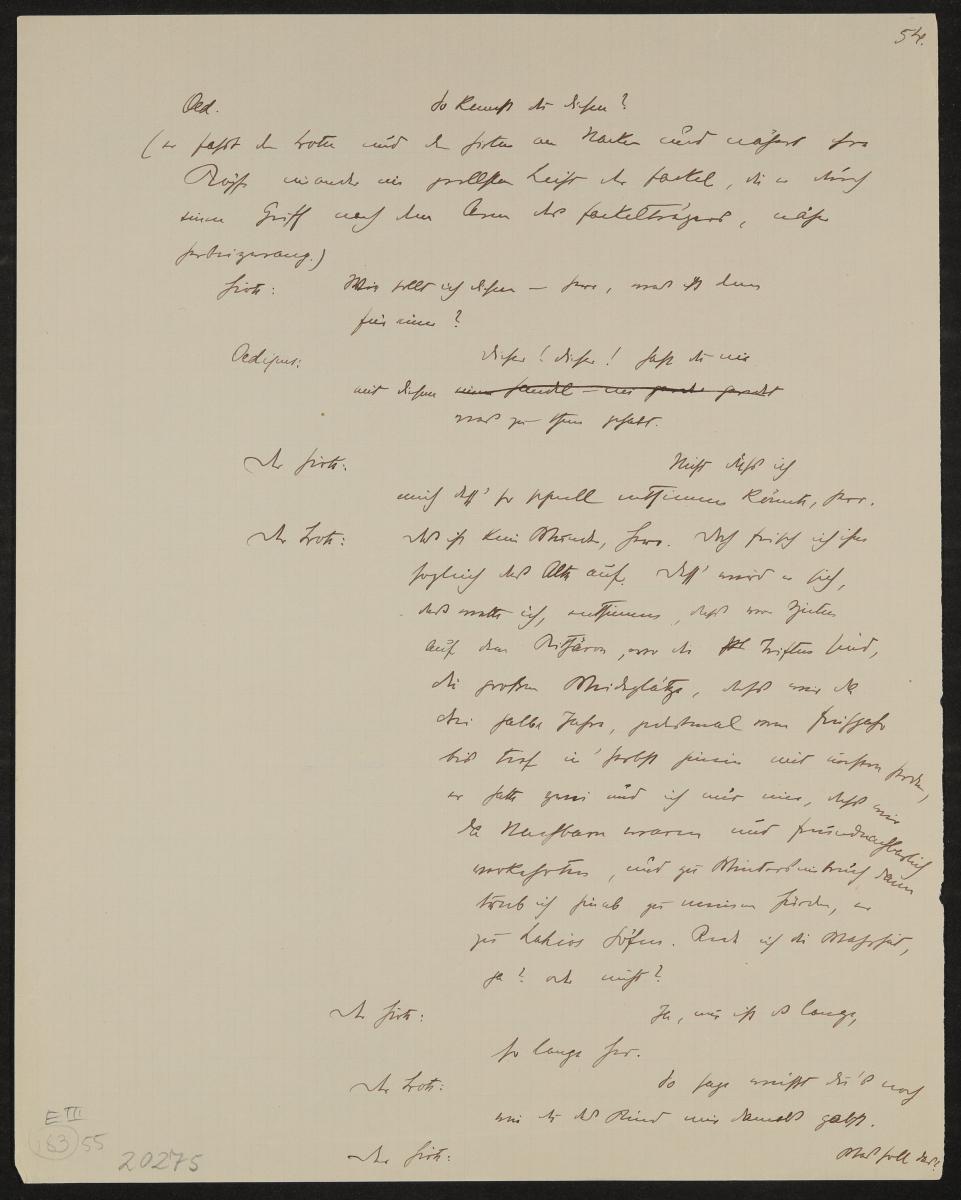 54.
Oed. So kennst du diesen?
(er fasst den Boten und den Hirten am Nacken und nähert ihre
Köpfe einander im grellsten Licht der Fackel, die er durch
seinen Griff nach dem Arm des Fackelträgers, näher
herbeizwang.)
Hirte: Wie sollt ich diesen — Herr, was ist denn
für einer?
Oedipus: Dieser! Dieser! Hast du nie
mit diesem
was zu thun gehabt.
Der Hirte: Nicht dass ich
mich dess' so schnell entsinnen könnte, Herr.
Der Bote: Das ist kein Wunder, Herr. Doch frisch ich ihm
sogleich das Alte auf. Dess' wird er sich,
das wette ich, entsinnen, dass vor Zeiten
auf dem Kithäron, wo die Triften sind,
die großen Weideplätze, dass wir da
drei halbe Jahre, jedesmal vom Frühjahr
bis tief in' Herbst hinein mit unsern Herden,
er hatte zwei und ich nur eine, dass wir
da Nachbarn waren und freundnachbarlich
verkehrten, und zu Winterseinbruch dann
trieb ich hinab zu meinen Hürden, er
zu Laïos Höfen. Red ich die Wahrheit,
ja? oder nicht?
Der Hirte: Ja, nur ist es lange,
so lange her.
Der Bote: So sage weißt du's noch
wie du das Kind mir damals gabst.
Der Hirte: Was soll das?
E III
183 55
20275